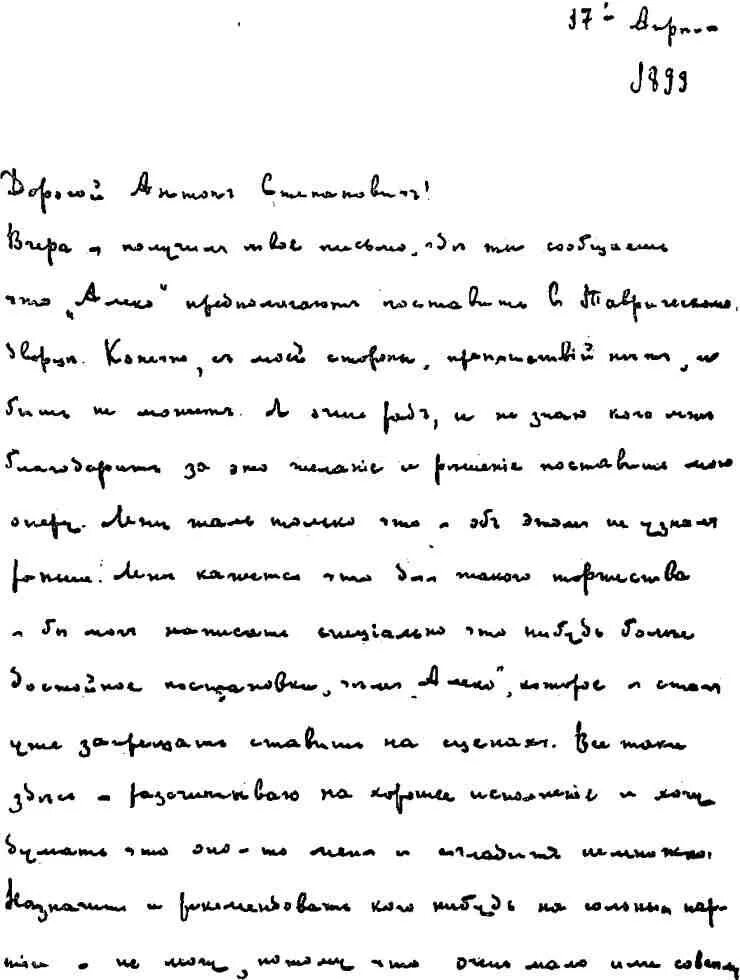 17го Апреля
1899
Дорогой Антонъ Степановичъ!
Вчера я получилъ твое письмо, гдѣ ты сообщаешь
что „Алеко" предполагаютъ поставить въ Таврическомъ
дворцѣ. Конечно, съ моей стороны, препятствій нѣтъ, и
быть не можетъ. Я очень радъ, и не знаю кого мнѣ
благодарить за это желаніе и рѣшеніе поставить мою
оперу. Мнѣ жаль только что я объ этомъ не узналъ
раньше. Мнѣ кажется что для такого торжества
я бы могъ написать спеціально что нибудь болѣе
достойное постановки, чѣмъ „Алеко", которое я сталъ
уже запрещать ставить на сценахъ. Все таки
здѣсь я разсчитываю на хорошее исполненіе и хочу
думать что оно-то меня и сгладитъ немножко.
Назначить и рекомендовать кого нибудь на сольныя пар-
тіи я не могу, потому что очень мало или совсѣмъ